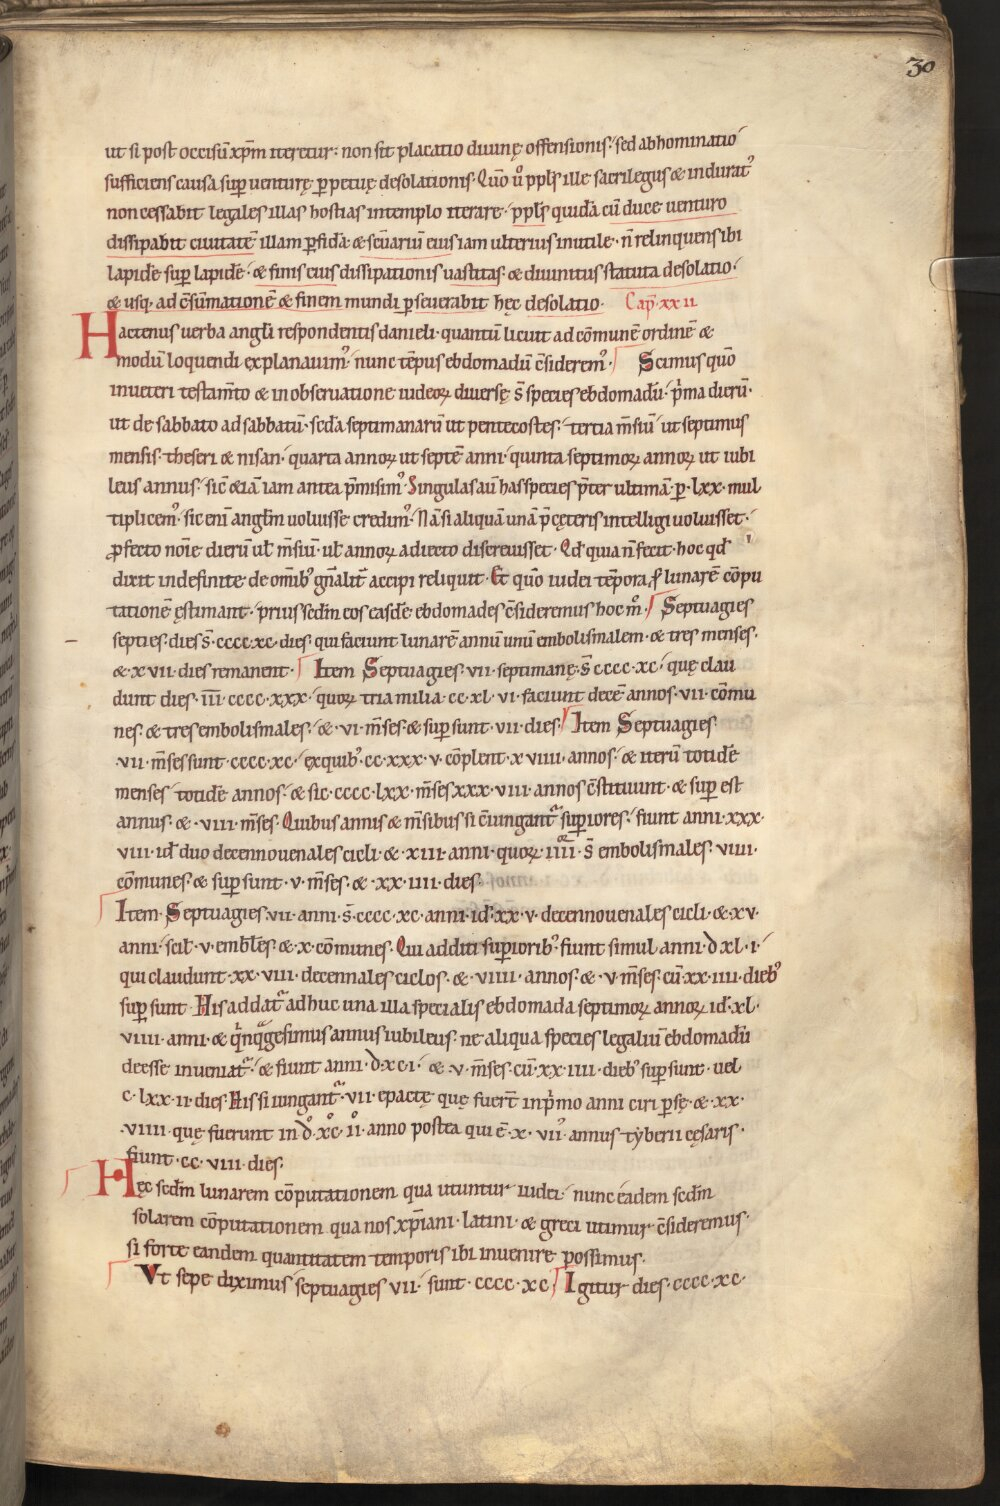 30
ut si post occisū xp̄m iteretur· non sit placatio diuinę offensionis· sed abhominatio
sufficiens causa sup̄ uenturę p̄petuę desolationis· Quo ů ppl̄s ille sacrilegus & indurat᾽
non cessabit legales illas hostias in templo iterare· ppl̄s quidā cū duce uenturo
dissipabit ciuitatē illam p̄fidā· & sc̄uariū eius iam ulterius inutile· n̄ relinquens ibi
lapidē sup̄ lapidē· & finis eius dissipationis uastitas· & diuinitus statuta desolatio·
& usq· ad c̄sūmationē & finem mundi p̄seuerabit hęc desolatio· Cap̄· xxii
Hactenus uerba angl̄i respondentis danieli· quantū licuit ad cōmunē ordinē &
modū loquendi explanauim᾽· nunc tēpus ebdomadū c̄siderem᾽· Scimus quo
in ueteri testam̄to & in obseruatione iudeoꝝ diuersę s̄ species ebdomadū· p̓ma dierū·
ut de sabbato ad sabbatū· sc̄da septimanarū ut pentecostes· tertia m̄siū ut septimus
mensis· theseri & nisan· quarta annoꝝ ut septē anni· quinta septimoꝝ annoꝝ ut iubi
leus annus· sic̄ &iā iam antea p̄misim᾽· Singulas aū has species p̄ter ultimā· p̄· lxx· mul
tiplicem᾽· sic eni angl̄m uoluisse credim᾽· Nā si aliquā unā p̄ cęteris intelligi uoluisset·
ꝓfecto no͞ie dierū ul̄ m̄siū· ul̄ annoꝝ adiecto discreuisset· Qd̄ quia n̄ fecit· hoc qd̄
dixit indefinite· de om̄ib᾽ gn̄alit̄ accipi reliquit· Et quo iudei tēpora ſ lunarē cōpu
tationē ęstimant· prius sedm̄ eos easdē ebdomades c̄sideremus hoc m̊· Septuagies
septies· dies s̄· cccc· xc· dies· qui faciunt lunarē annū unū embolismalem· & tres menses·
& x vii· dies remanent· Item Septuagies· vii· septimanę· s̄ cccc· xc· quę clau
dunt dies· iii̅· cccc· xxx· quoꝝ tria milia· cc· xl· vi· faciunt decē annos· vii· cōmu
nes· & tres embolismales· & vi· m̄ses· & sup̄ sunt· vii· dies· Item Septuagies
·vii· m̄ses sunt· cccc· xc· ex quib᾽· cc· xxx· v· cōplent· x viiii· annos· & iterū totidē
menses totidē annos· & sic· cccc· lxx· m̄ses xxx· viii· annos c̄stituunt· & sup̄ est
annus· & ·viii· m̄ses· Quibus annis & m̄sibus si c̄iungant᾽ sup̄iores· fiunt anni· xxx·
viii· id̄· duo decennouenales cicli· & xiii· anni· quoꝝ iiii· s̄ embolismales· viiii·
cōmunes· & sup̄ sunt· v· m̄ses· & ·xx· iiii· dies·
Item Septuagies· vii· anni· s̄· cccc· xc· anni· id̄· xx· v· decennouenales cicli· & xv·
anni· scil̄· v· embl̄es· & x· cōmunes· Qui additi sup̄iorib᾽· fiunt simul anni· d xl· i·
qui claudunt· xx· viii· decennales ciclos· & viiii· annos· & v· m̄ses· cū xx· iiii· dieb᾽
sup̄ sunt His addat᾽ adhuc una illa specialis ebdomada septimoꝝ annoꝝ id̄· xl·
viiii· anni· & q̓nq̓gesimus annus iubileus· ne aliqua species legaliū ebdomadū
deesse inueniat᾽· & fiunt anni· d· xc· i· & ·v· m̄ses· cū· xx· iiii· dieb᾽ sup̄ sunt· uel
c· lxx· ii· dies His si iungant᾽· vii· epactę quę fuer̄t in p̓mo anni ciri p̄sę· & ·xx·
·viiii· quę fuerunt in d̊· xc̊ ii̊· anno postea qui ē· x· vii᾽ annus tẏberii cęsaris·
fiunt· cc· viii· dies·
Hęc sedm̄ lunarem cōputationem qua utuntur iudei· nunc eadem sedm̄
solarem cōputationem qua nos xp̄iani· latini· & greci utimur c̄sideremus·
si forte eandem quantitatem temporis ibi inuenire possimus·
Vt sepe diximus septuagies vii· sunt· cccc· xc· Igitur dies· cccc· xc·